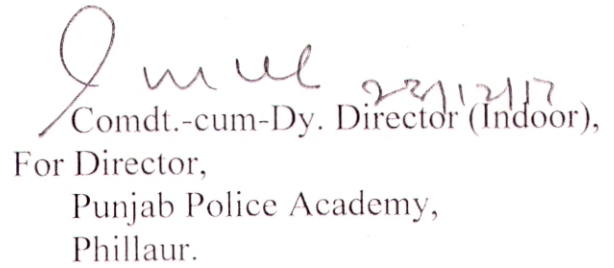 22/12/17
Comdt.-cum-Dy. Director (Indoor),
For Director,
Punjab Police Academy,
Phillaur.